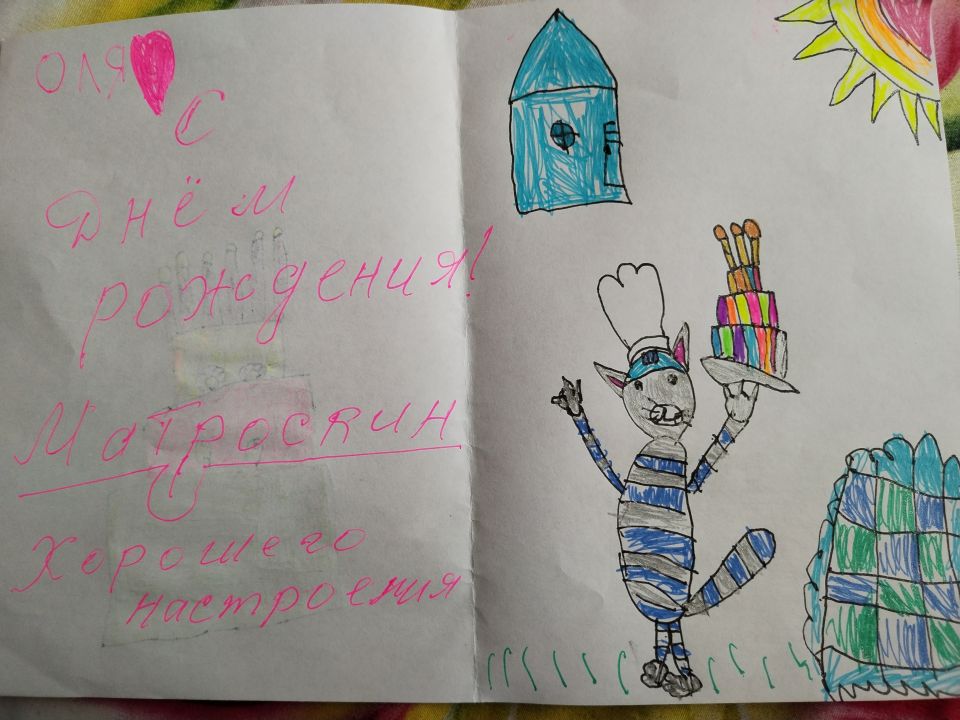 ОЛЯ
С
Днём
рождения!
Матроскин
Хорошего
настроения